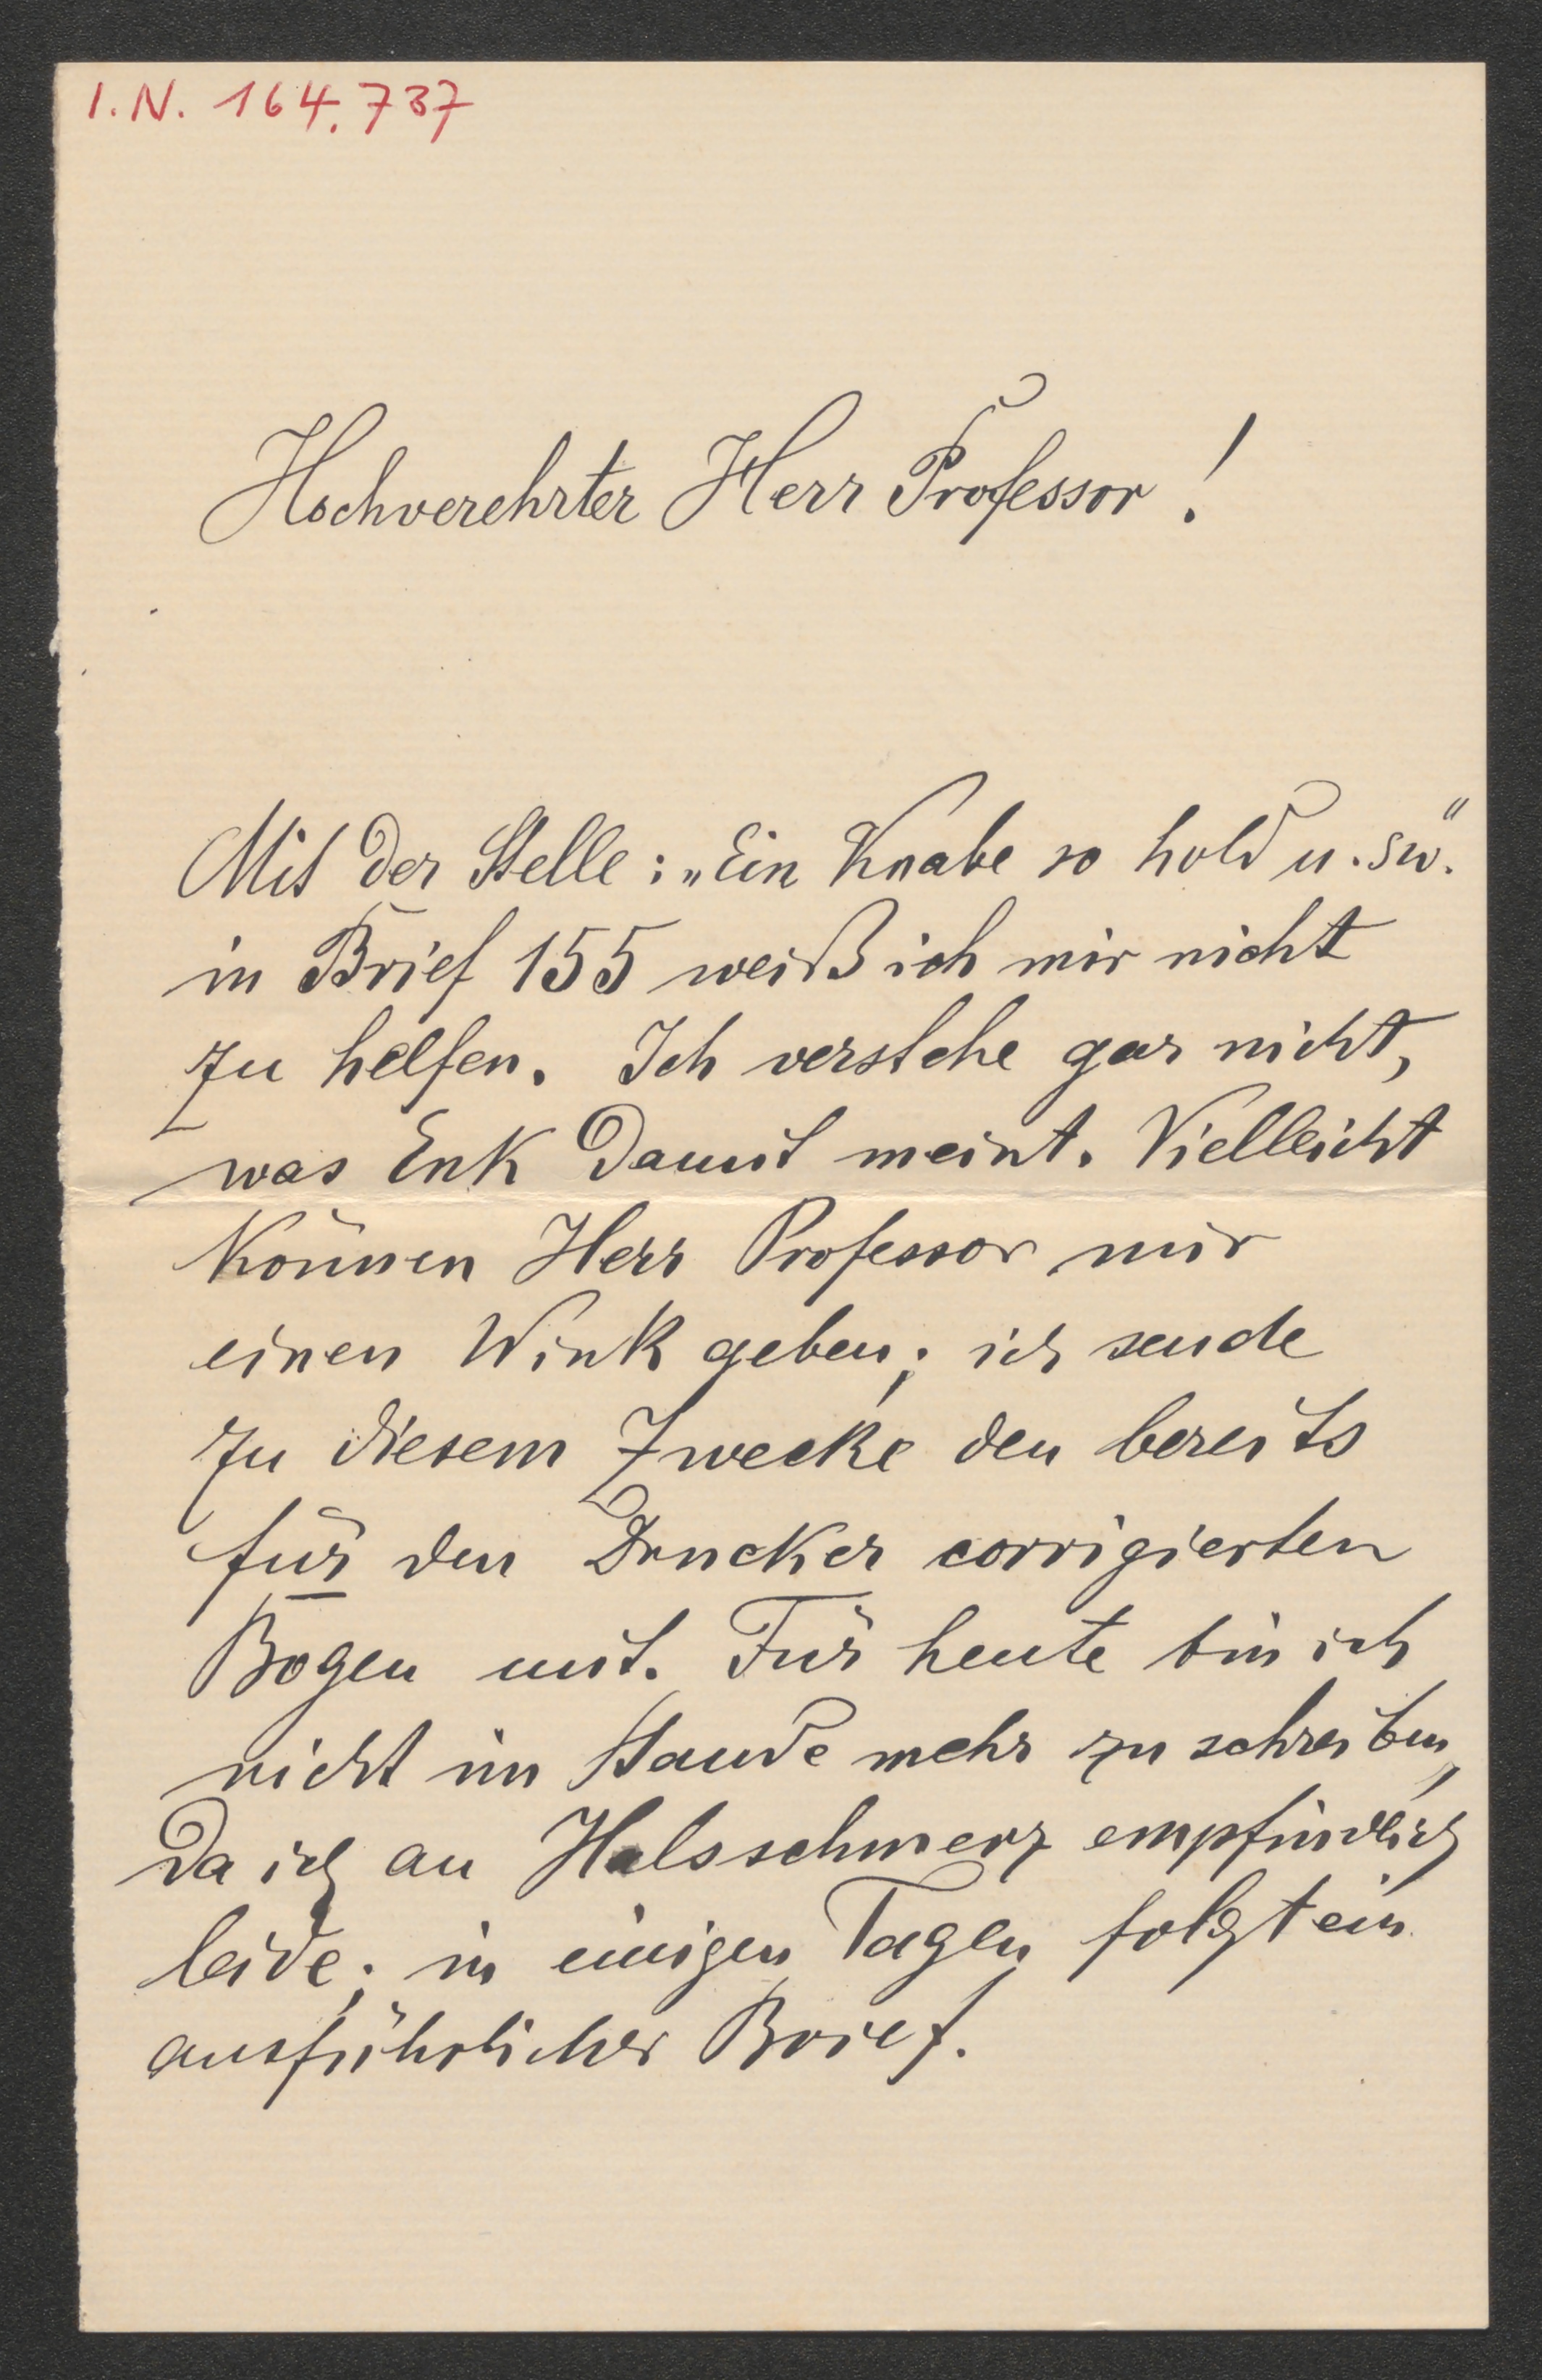 I.N. 164.737
Hochverehrter Herr Professor!
Mit der Stelle: „Ein Knabe so hold u. sw."
in Brief 155 weiß ich mir nicht
zu helfen. Ich verstehe gar nicht,
was Enk damit meint. Vielleicht
können Herr Professor mir
einen Wink geben; ich sende
zu diesem Zwecke den bereits
für den Drucker corrigierten
Bogen mit. Für heute bin ich
nicht im Stande mehr zu schreiben,
da ich an Halsschmerz empfindlich
leide; in einigen Tagen folgt ein
ausführlicher Brief.